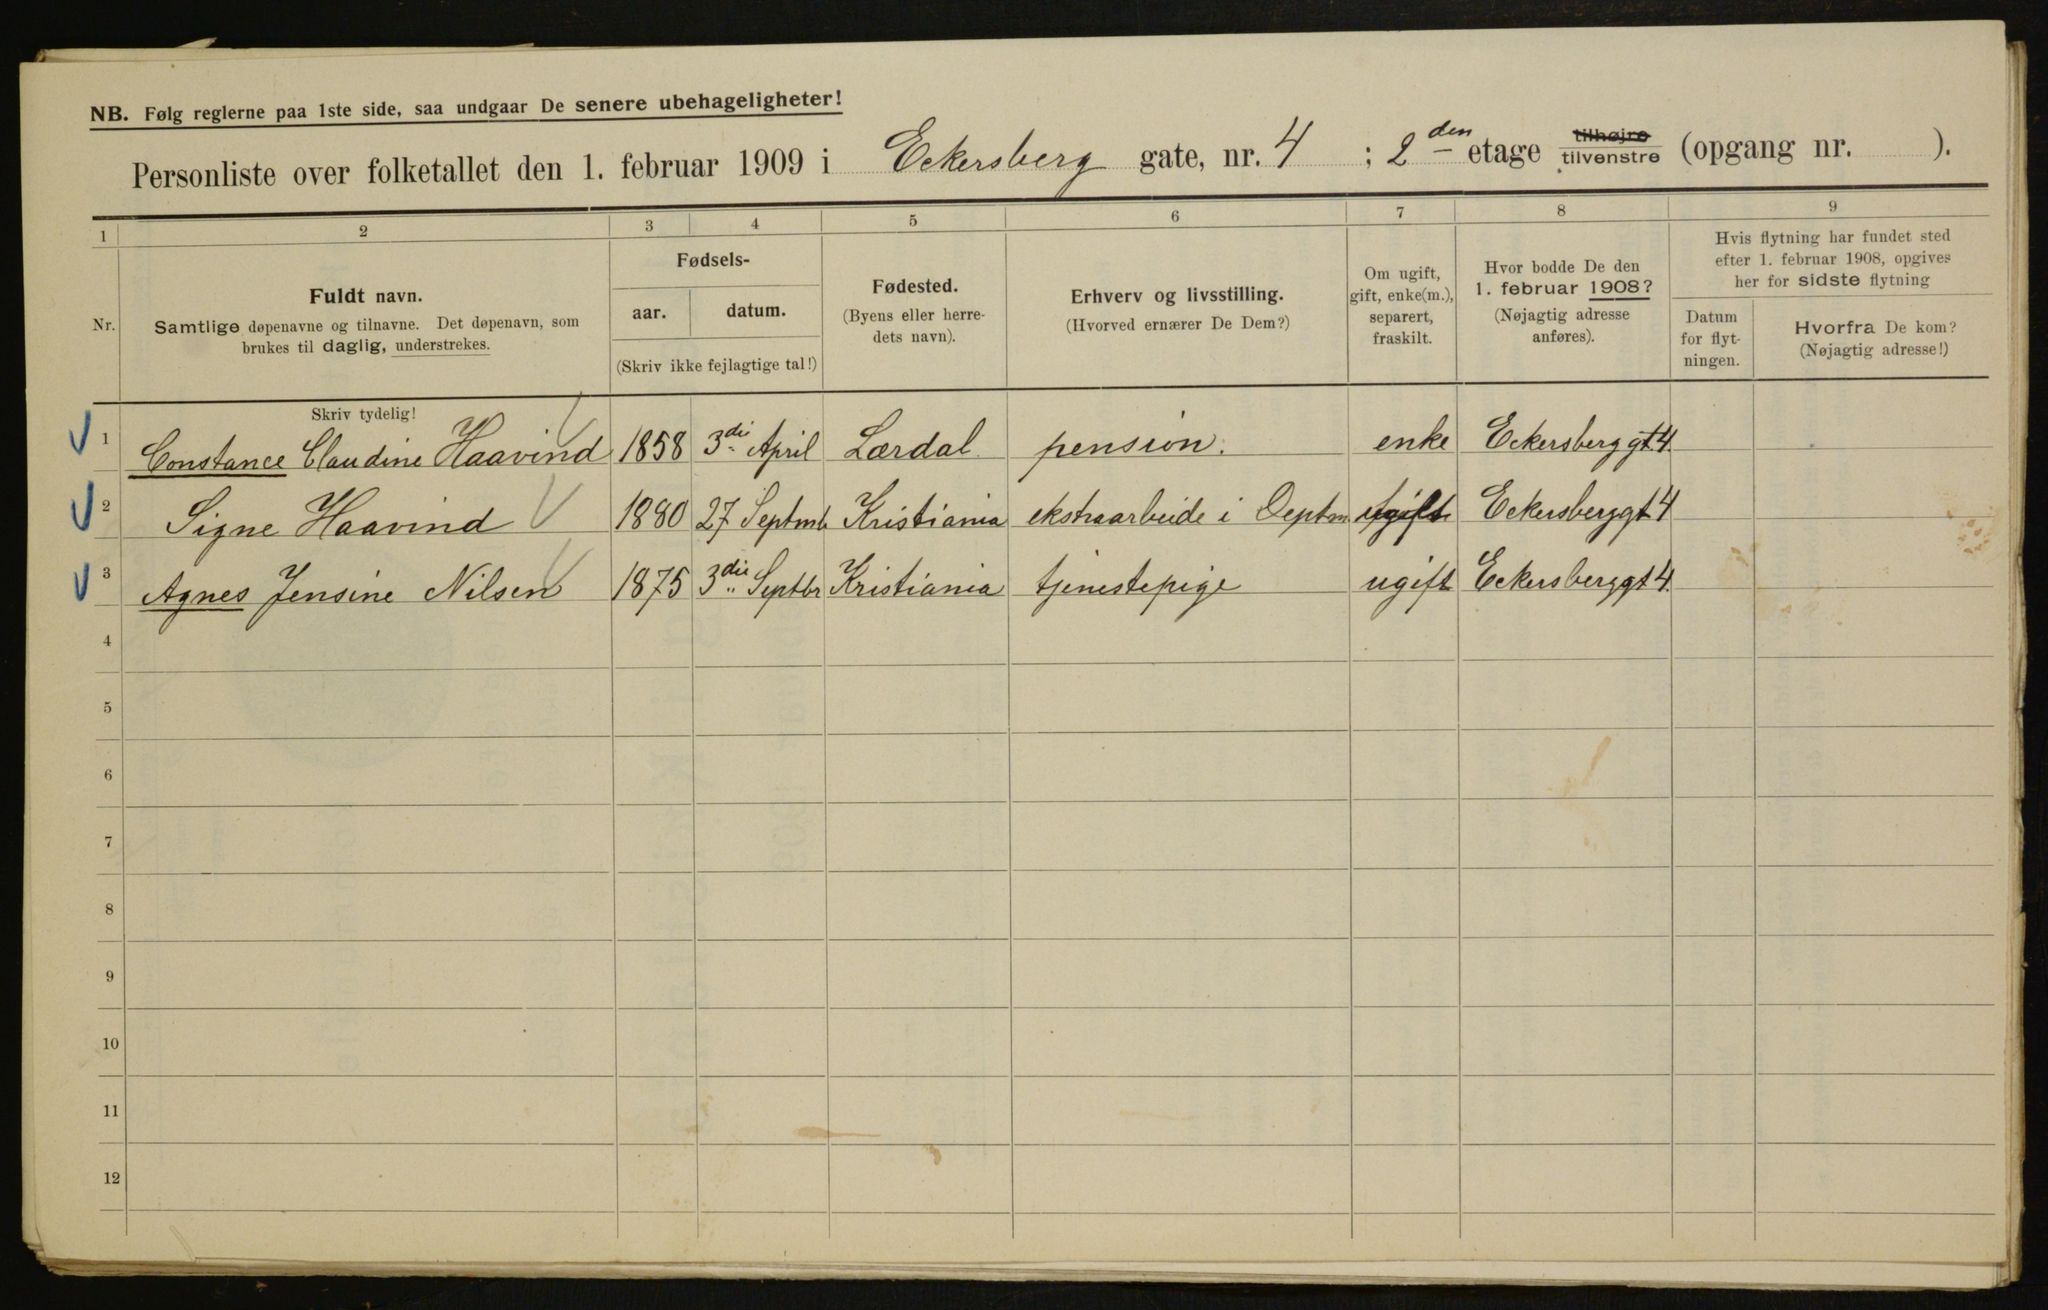 NB. Følg reglerne paa 1ste side, saa undgaar De senere ubehageligheter!
Personliste over folketallet den 1. februar 1909 i Eckersberg gate, nr. 4 ; 2den etage tilhøjre tilvenstre (opgang nr. ).
1 2 3 4 5 6 7 8 9
Nr.
Fuldt navn.
Samtlige døpenavne og tilnavne. Det døpenavn, som
brukes til daglig, understrekes.
Fødsels-
aar. datum.
(Skriv ikke fejlagtige tal!)
Fødested.
(Byens eller herre-
dets navn).
Erhverv og livsstilling.
(Hvorved ernærer De Dem?)
Om ugift,
gift, enke(m.),
separert,
fraskilt.
Hvor bodde De den
1. februar 1908?
(Nøjagtig adresse
anføres).
Hvis flytning har fundet sted
efter 1. februar 1908, opgives
her for sidste flytning
Datum
for flyt-
ningen.
Hvorfra De kom?
(Nøjagtig adresse!)
Skriv tydelig!
1 Constance Claudine Haavind 1858 3die April Lærdal pension. enke Eckersberg gt 4.
2 Signe Haavind 1880 27 Septmb Kristiania ekstraarbeide i Deptm ugift Eckersberggt 4
3 Agnes Jensine Nilsen 1875 3die Septbr Kristiania tjenestepige ugift Eckersberggt 4.
4
5
6
7
8
9
10
11
12